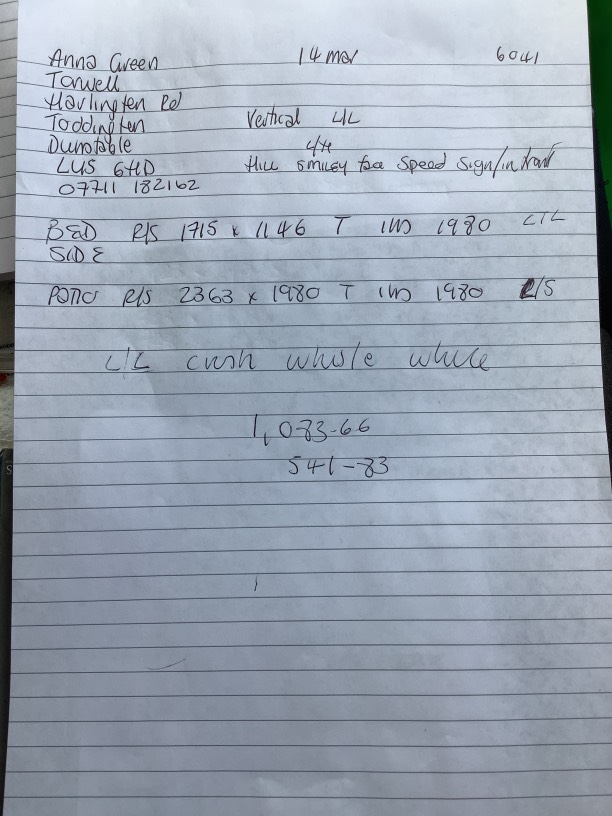 Anna Green 14 mar 6041
Tarwell
Harlington Rd
Toddington Vertical L/L
Dunstable
LU5 6HD Hill smiley face speed sign/in front
07711 182162
BED R/S 1715 x 1146 T IW 1980 L/L
SIDE
PATIO R/S 2363 x 1980 T IW 1980 R/S
L/L crush whole white
1,083-66
541-83